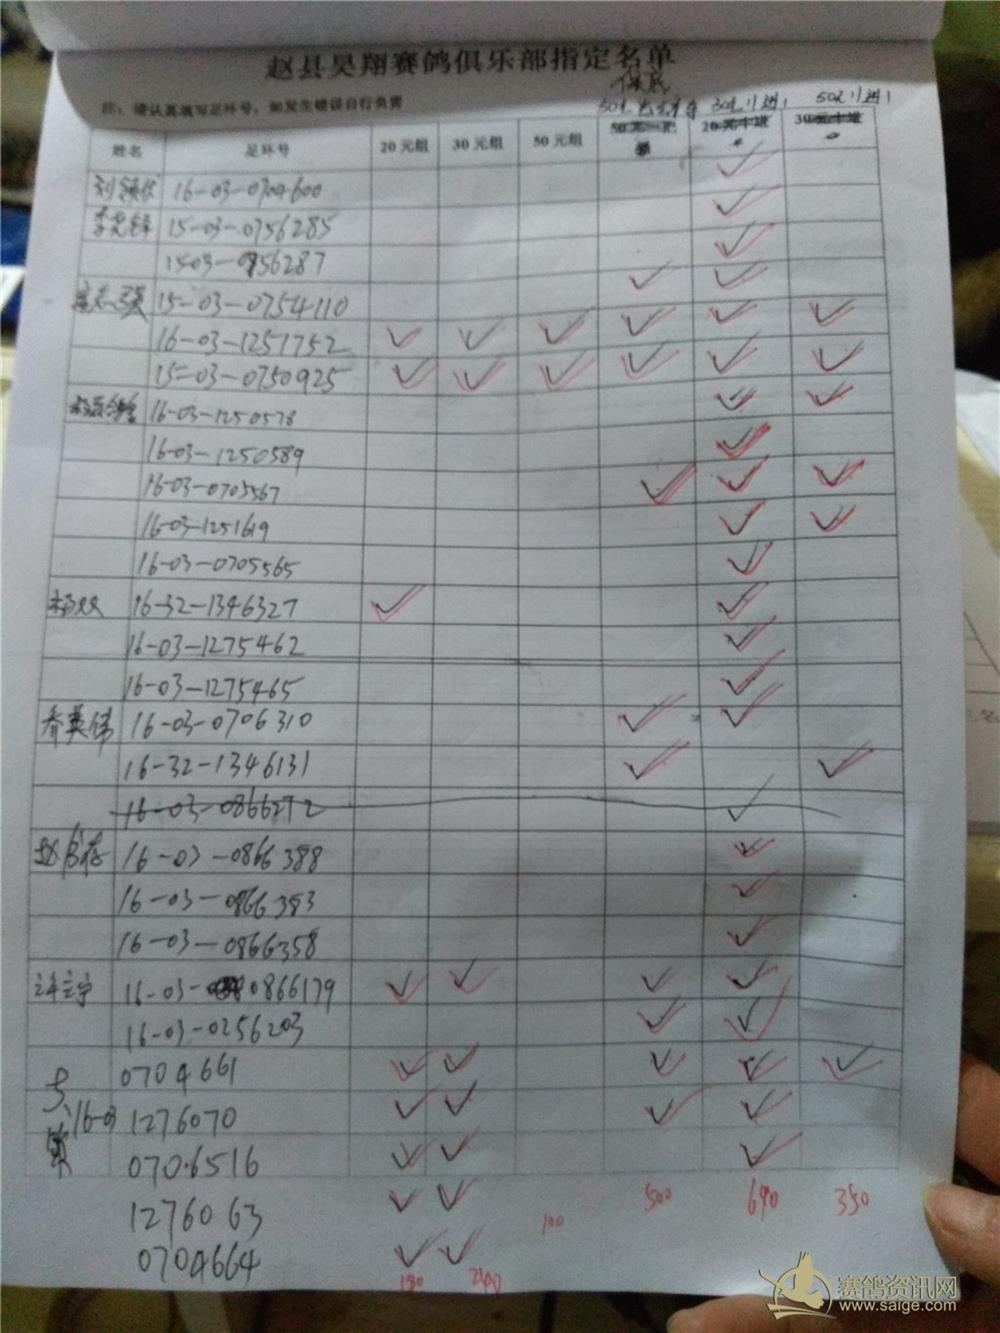 赵县昊翔赛鸽俱乐部指定名单
保底
注：请认真填写足环号，如发生错误自行负责
30元11进1 50元11进1
姓名 足环号 20元组 30元组 50元组
16-03-0704600
15-03-0756285
1503-0756287
15-03-0754110
16-03-1251752
15-03-0750925
16-03-1250578
16-03-1250589
16-03-0705567
16-03-1251619
16-03-0705565
杨双 16-32-1346327
16-03-1275462
16-03-1275465
乔英伟 16-03-0706310
16-32-1346131
16-03-0866272
16-03-0866388
16-03-0866383
16-03-0866358
许立宁 16-03-0866179
16-03-0256203
0704661
16-03 1276070
070.6516
1276063
0704664
180 240 100 500 690 350
赛鸽资讯网
www.saige.com